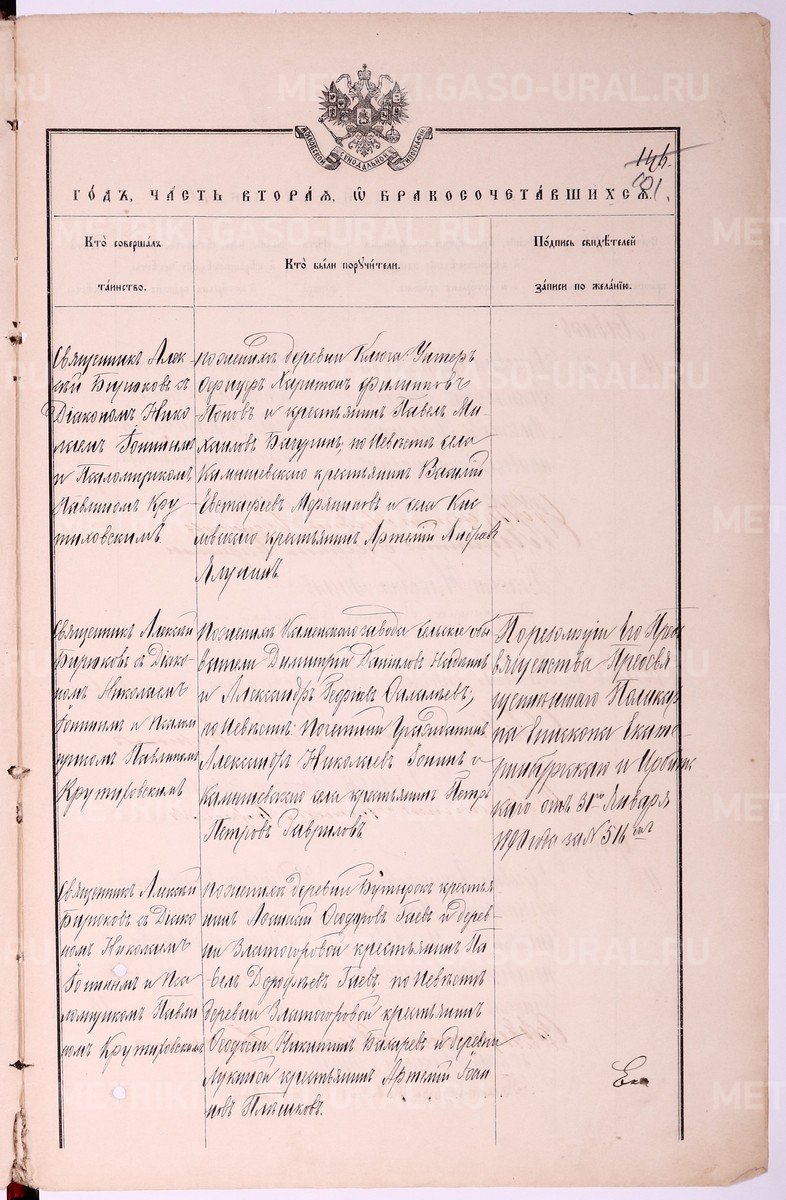 METRIKI.GASO-URAL.RU
МОСКОВСКОЙ СѴНОДАЛЬНОЙ ТИПОГРАФІИ
146.
181.
ГО́ДЪ, ЧА́СТЬ ВТОРА́Я, Ѡ҆ БРАКОСОЧЕТА́ВШИХСЯ.
Кто̀ соверша́лъ
та́инство.
Кто̀ бы́ли порꙋчи́тели.
По́дпись свидѣ́телей
за́писи по жела́нію.
Священникъ Алек
сѣй Бирюковъ съ
Діакономъ Нико
лаемъ Топинымъ
и Псаломщикомъ
Павлиномъ Кру
тиховскимъ
по женихѣ деревни Ключа Унтеръ
Офицеръ Харитонъ Филиповъ
Поповъ и крестьянинъ Павелъ Ми
хаиловъ Бачуринъ; по невѣстѣ села
Камышевскаго крестьянинъ Василій
Евстафіевъ и села Кис
ловскаго крестьянинъ Артемій
Ялунинъ
Священникъ Алексѣй
Бирюковъ съ Діако
номъ Николаемъ
Топинымъ и Псалом
щикомъ Павлиномъ
Крутиховскимъ
По женихѣ Каменскаго завода сельскіе обы
ватели Димитрій Даниловъ
и Александръ Георгіевъ
по невѣстѣ: Почетный Гражданинъ
Александръ Николаевъ Топинъ и
Камышевскаго села крестьянинъ Петръ
Петровъ Гавриловъ
По резолюціи Его Прео
священства Преосвя
щеннѣйшаго Поликар
па Епископа Екате
ринбургскаго и Ирбит
скаго отъ 31го Января
года за № 516мъ
Священникъ Алексѣй
Бирюковъ съ Діако
номъ Николаемъ
Топинымъ и Пса
ломщикомъ Павли
номъ Крутиховскимъ
по женихѣ деревни Бутырокъ крестья
нинъ Ѳеодоровъ Гаевъ и дерев
ни Златогоровой крестьянинъ Па
велъ Дорофѣевъ Гаевъ. по невѣстѣ
деревни Златогоровой крестьянинъ
Ѳеодосій Никитинъ и деревни
Лукиной крестьянинъ Артемій
Плѣшковъ.